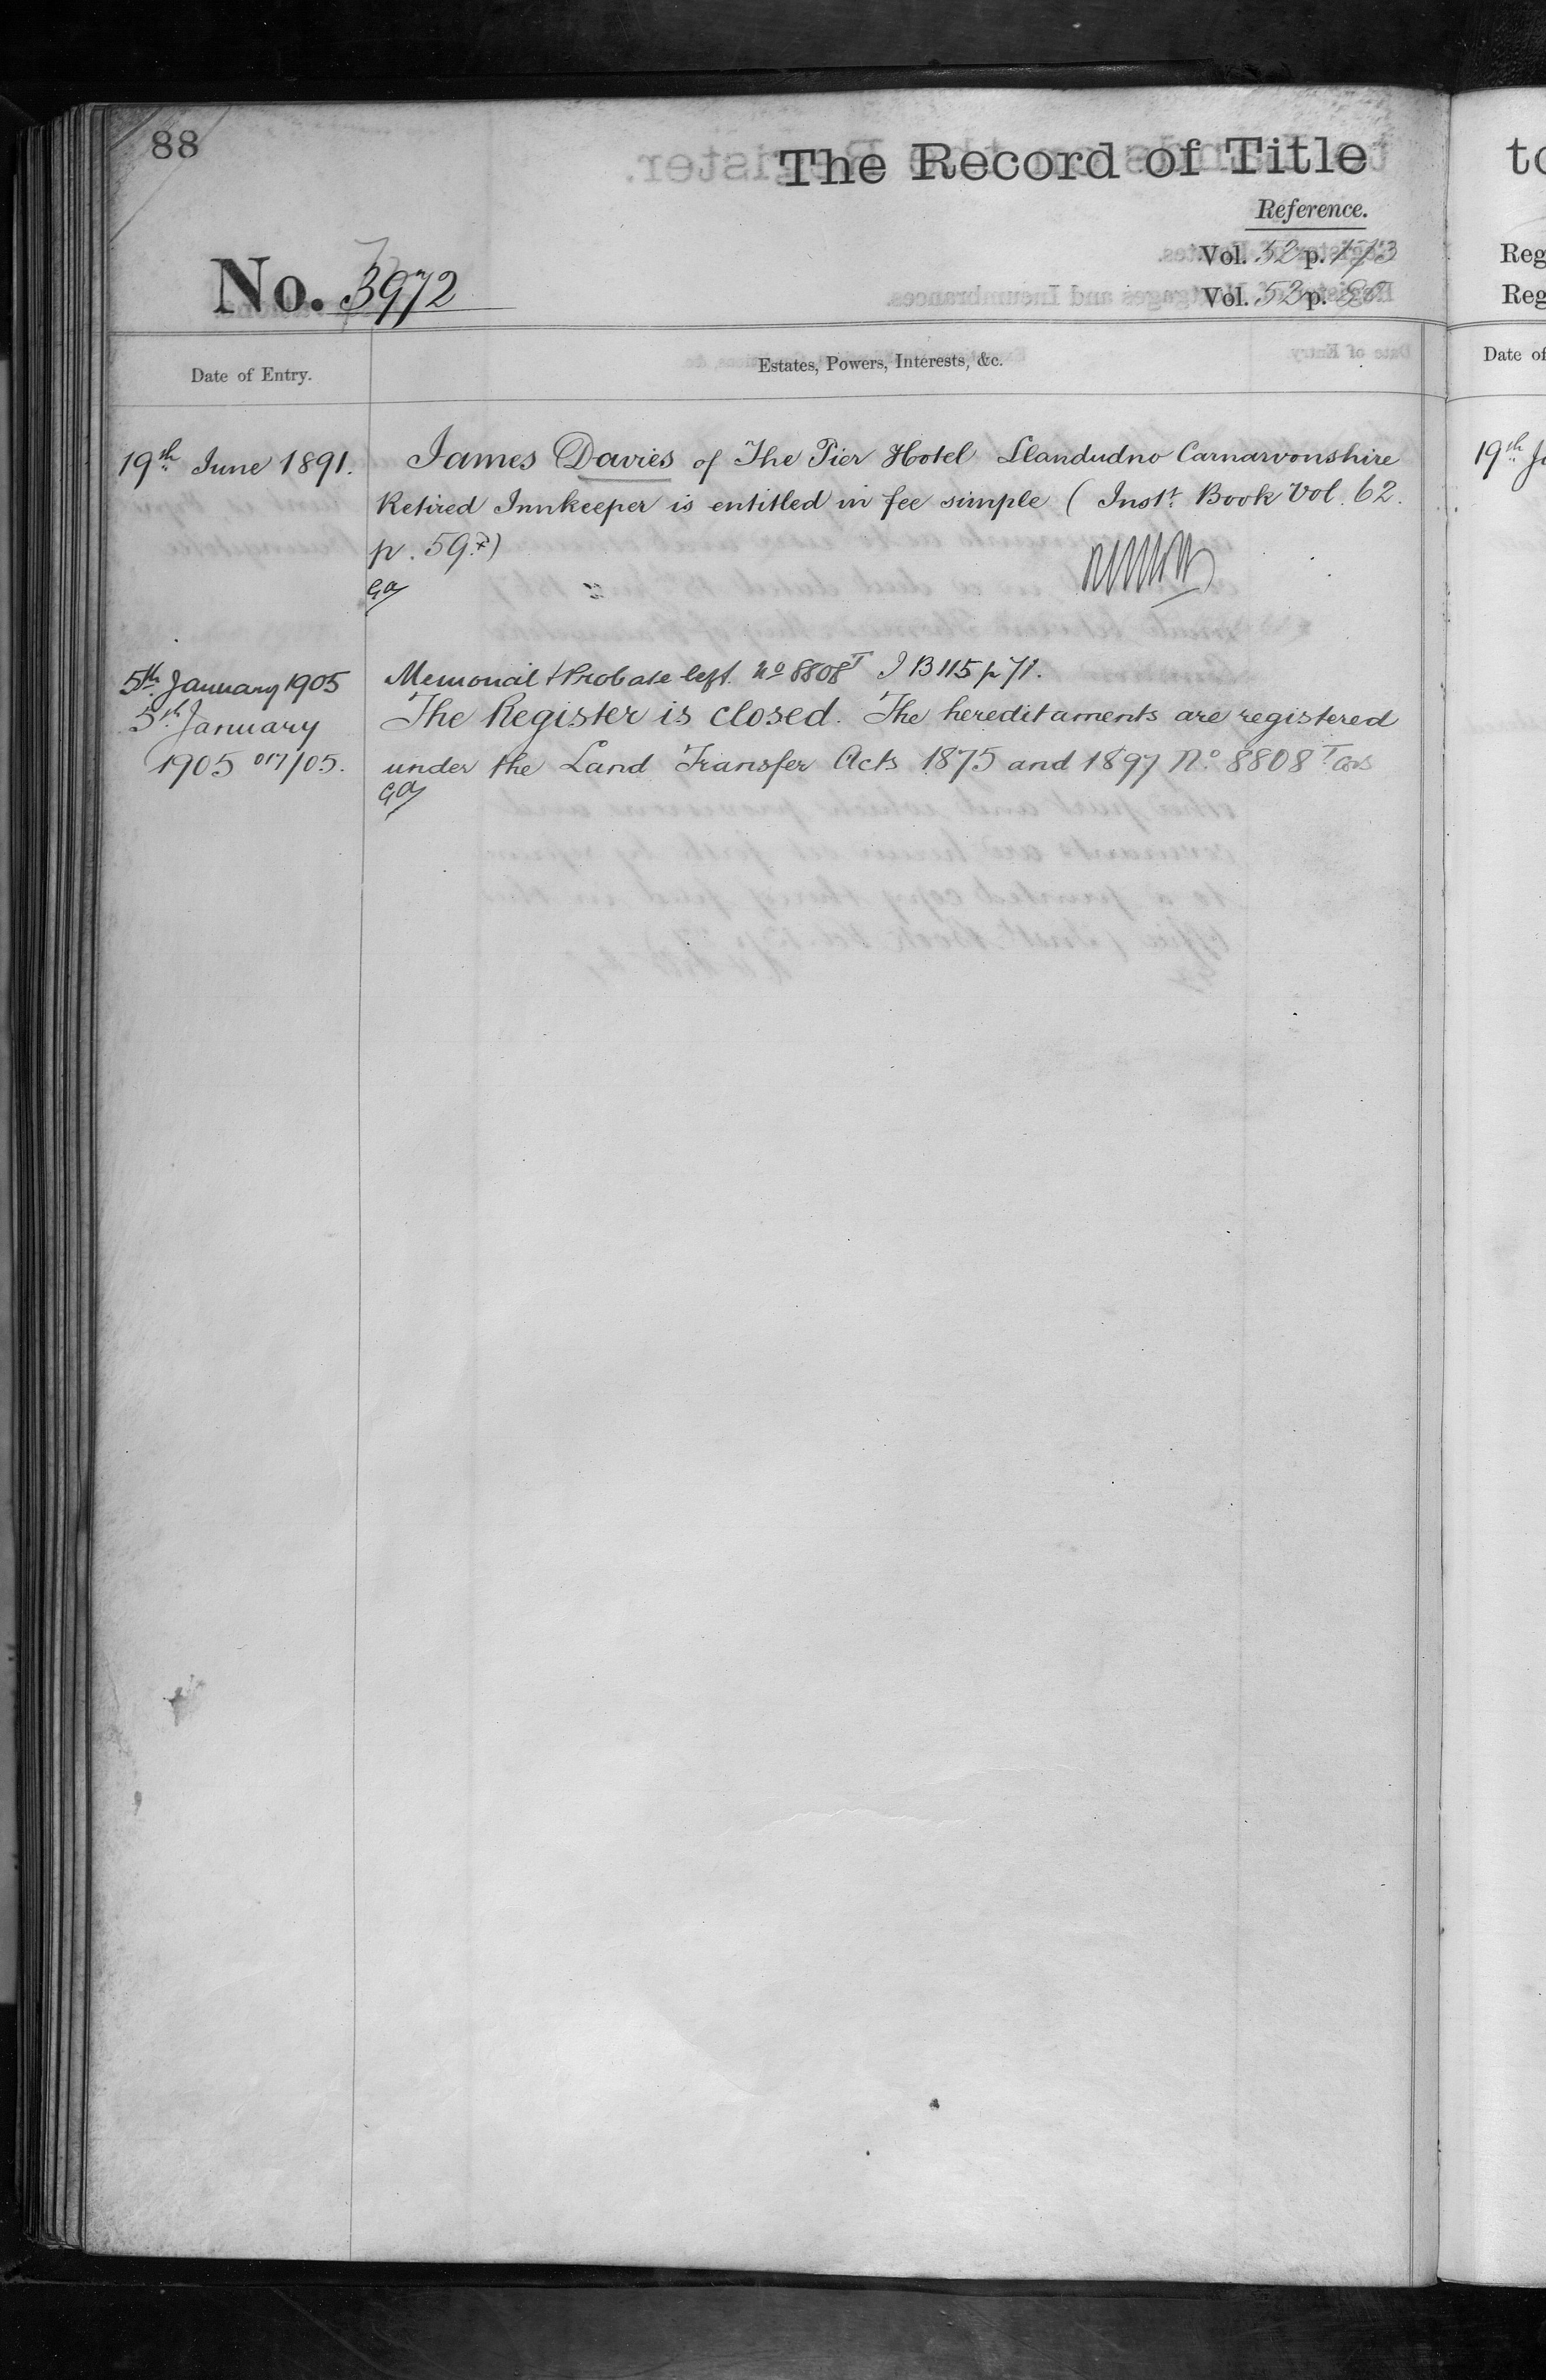 88
The Record of Title
Reference.
Vol. 52 p. 173
Vol. 53 p.
No. 3972
Date of Entry.
Estates, Powers, Interests, &c.
19th June 1891.
James Davies of The Pier Hotel Llandudno Carnarvonshire
Retired Innkeeper is entitled in fee simple (Inst. Book Vol. 62.
p. 59)
5th January 1905
Memorial & Probate left. No 8808 T I B 115 p 71.
5th January
1905 017/05.
The Register is closed. The hereditaments are registered
under the Land Transfer Acts 1875 and 1897 No. 8808 T
to
Reg
Reg
Date of
19th Ju